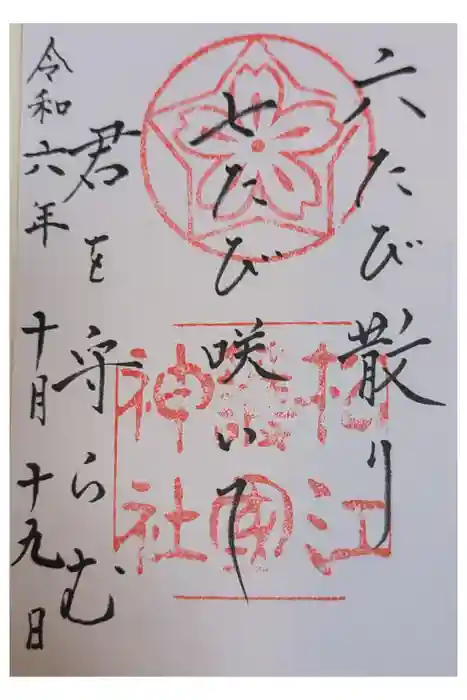 六たび散り
七たび咲いて
君を守らむ
令和六年十月十九日
松江
護國
神社